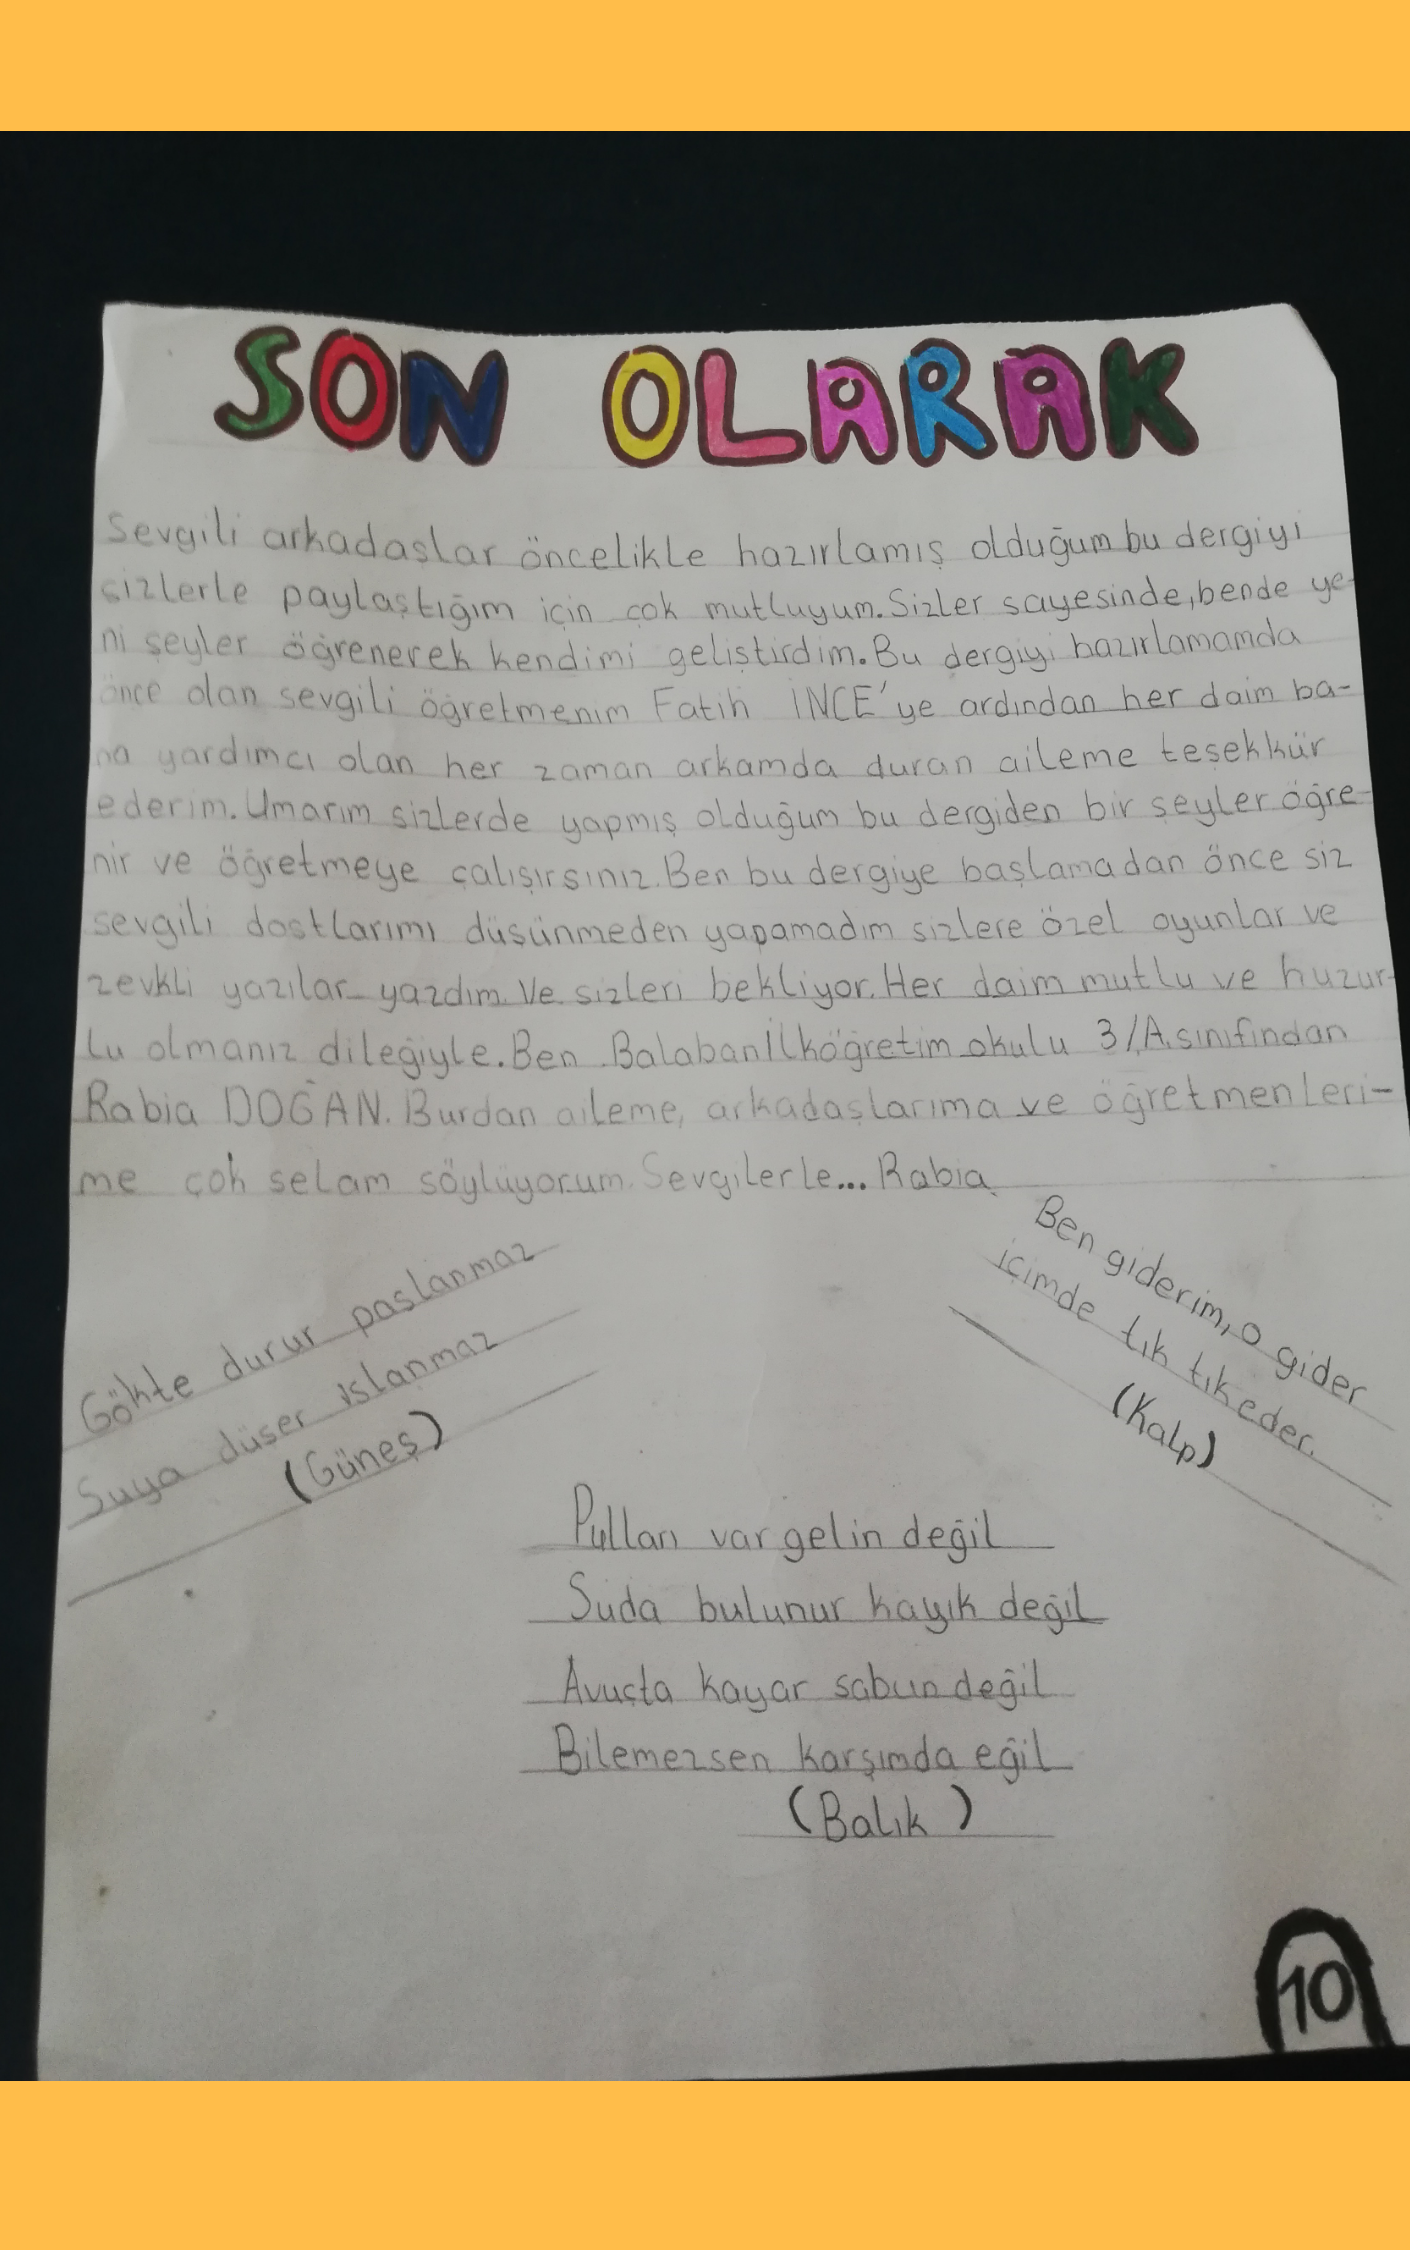 SON OLARAK
Sevgili arkadaşlar öncelikle hazırlamış olduğum bu dergiyi
sizlerle paylaştığım için çok mutluyum. Sizler sayesinde, bende ye-
ni şeyler öğrenerek kendimi geliştirdim. Bu dergiyi hazırlamamda
önce olan sevgili öğretmenim Fatih İNCE'ye ardından her daim ba-
na yardımcı olan her zaman arkamda duran aileme teşekkür
ederim. Umarım sizlerde yapmış olduğum bu dergiden bir şeyler öğre-
nir ve öğretmeye çalışırsınız. Ben bu dergiye başlamadan önce siz
sevgili dostlarımı düşünmeden yapamadım sizlere özel oyunlar ve
zevkli yazılar yazdım. Ve sizleri bekliyor. Her daim mutlu ve huzur-
lu olmanız dileğiyle. Ben Balaban İlköğretim okulu 3/A. sınıfından
Rabia DOĞAN. Burdan aileme, arkadaşlarıma ve öğretmenleri-
me çok selam söylüyorum. Sevgilerle... Rabia
Gökte durur paslanmaz
Suya düşer ıslanmaz
(Güneş)
Ben giderim, o gider
içimde tık tık eder.
(Kalp)
Pulları var gelin değil
Suda bulunur kayık değil
Avuçta kayar sabun değil
Bilemezsen karşımda eğil
(Balık)
10